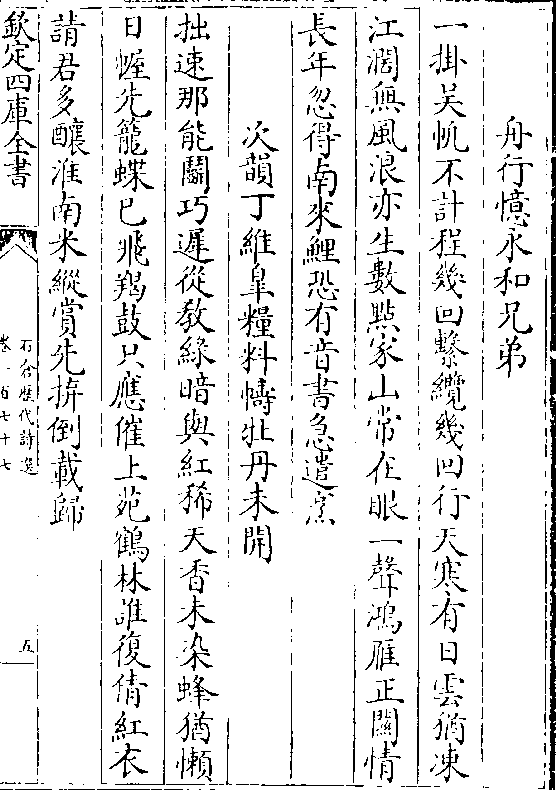 舟行憶永和兄弟
一掛吳帆不計程幾回繫纜幾回行天寒有日雲猶凍
江濶無風浪亦生數㸃家山常在眼一聲鴻雁正闗情
長年忽得南來鯉恐有音書急遣烹
次韻丁維臯糧料幬牡丹未開
拙速那能鬬巧遲從教緑暗與紅稀天香未染蜂猶懶
日幄先籠蝶已飛羯鼓只應催上苑鶴林誰復倩紅衣
請君多釀淮南米縱賞先拚倒載歸
欽定四庫全書
石倉歷代詩選
卷一百七十七
五